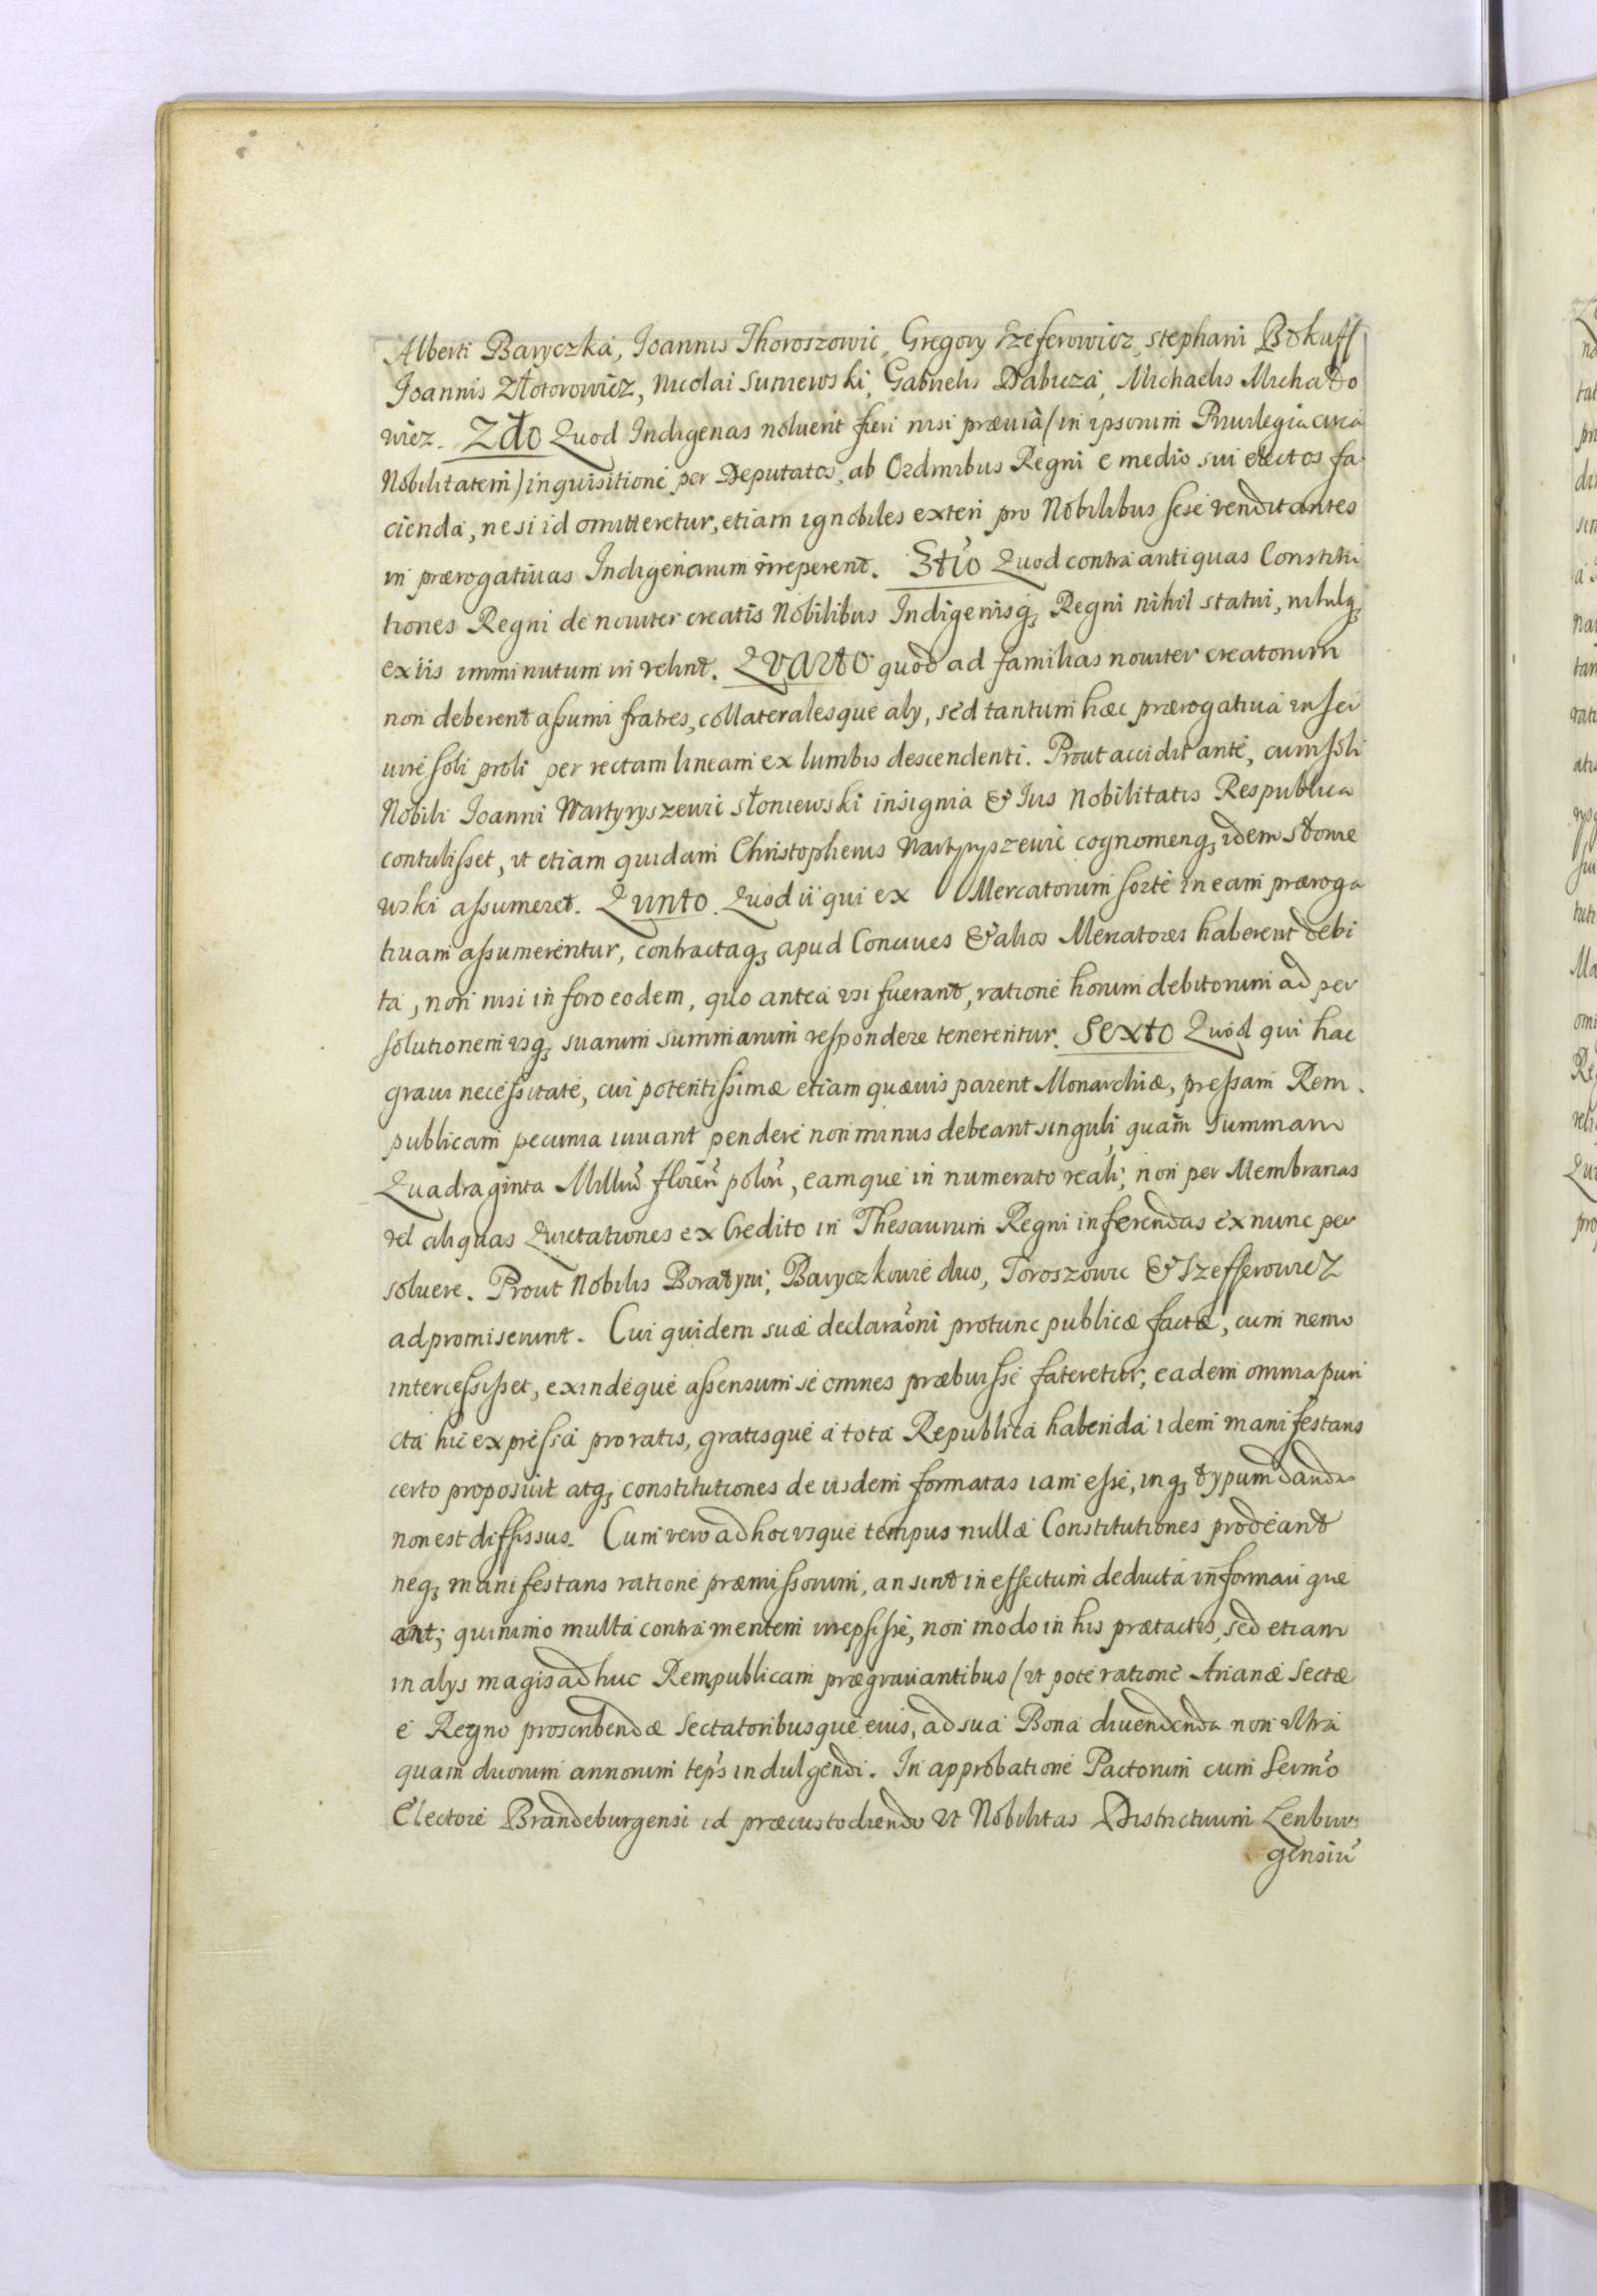 Alberti Baryczka, Ioannis Thoroszowic, Gregory Szeferowicz, Stephani Bokuff
Ioannis Złotorowicz, Nicolai Suniewski, Gabrielis Dabicza, Michaelis Michało
wicz. 2do Quod Indigenas noluerit fieri nisi præuia (in ipsorum Priuilegia circa
Nobilitatem) inquisitione per Deputatos, ab Ordinibus Regni e medio sui electos fa
cienda, ne si id omitteretur, etiam ignobiles exteri pro Nobilibus sese venditantes
in prærogatiuas Indigenarum irreperent. 3tio Quod contra antiquas Constitu
tiones Regni de nouiter creatis Nobilibus Indigenisq; Regni nihil statui, nihilq;
ex iis imminutum iri velint. Quarto quod ad familias nouiter creatorum
non deberent assumi fratres, collateralesque aly, sed tantum hæc prærogatiua insei
uire soli proli per rectam lineam ex lumbis descendenti. Prout accidit ante, cum soli
Nobili Ioanni Martyryszewic Słoniewski insignia & Ius Nobilitatis Respublica
contulisset, vt etiam quidam Christopherus Martyryszewic cognomenq; idem Słonie
wski assumeret. Qunto. Quod ii qui ex Mercatorum sorte in eam præroga
tiuam assumerentur, contractaq; apud Conciues & alios Mercatores haberent debi
ta, non nisi in foro eodem, quo antea vsi fuerant, ratione horum debitorum ad per
solutionem vsq; suarum summarum respondere tenerentur. Sexto Quod qui hac
graui necessitate, cui potentissimæ etiam quæuis parent Monarchiæ, pressam Rem
publicam pecunia iuuant pendere non minus debeant singuli quam summam
Quadraginta Milliu florēn polon, eamque in numerato reali; non per Membranas
vel aliquas Quietationes ex Credito in Thesaurum Regni inferendas ex nunc per
soluere. Prout Nobilis Boratyni, Baryczkowie duo, Toroszowic & Szefferowicz
adpromiserunt. Cui quidem suæ declaraoni protunc publicæ factæ, cum nemo
intercessisset, exindéque assensum se omnes præbuisse fateretur, eadem omnia pun
cta hic expressa pro ratis, gratisque a tota Republica habenda idem manifestans
certo proposuit atq; constitutiones de iisdem formatas iam esse, inq; typum dandas
non est diffissus. Cum vero ad hoc vsque tempus nullæ Constitutiones prodeant
neq; manifestans ratione præmissorum, an sint in effectum deducta informari que
ant; quinimo multa contra mentem irrepsisse, non modo in his prætactis, sed etiam
in alys magis adhuc Rempublicam prægrauantibus (vt pote ratione Arianæ Sectæ
e Regno proscribendæ Sectatoribusque eius, ad sua Bona diuendenda non vltra
quam duorum annorum teps indulgendi. In approbatione Pactorum cum Sermo
Electore Brandeburgensi id præcustodiendo vt Nobilitas Districtuum Lenbur
gensiu